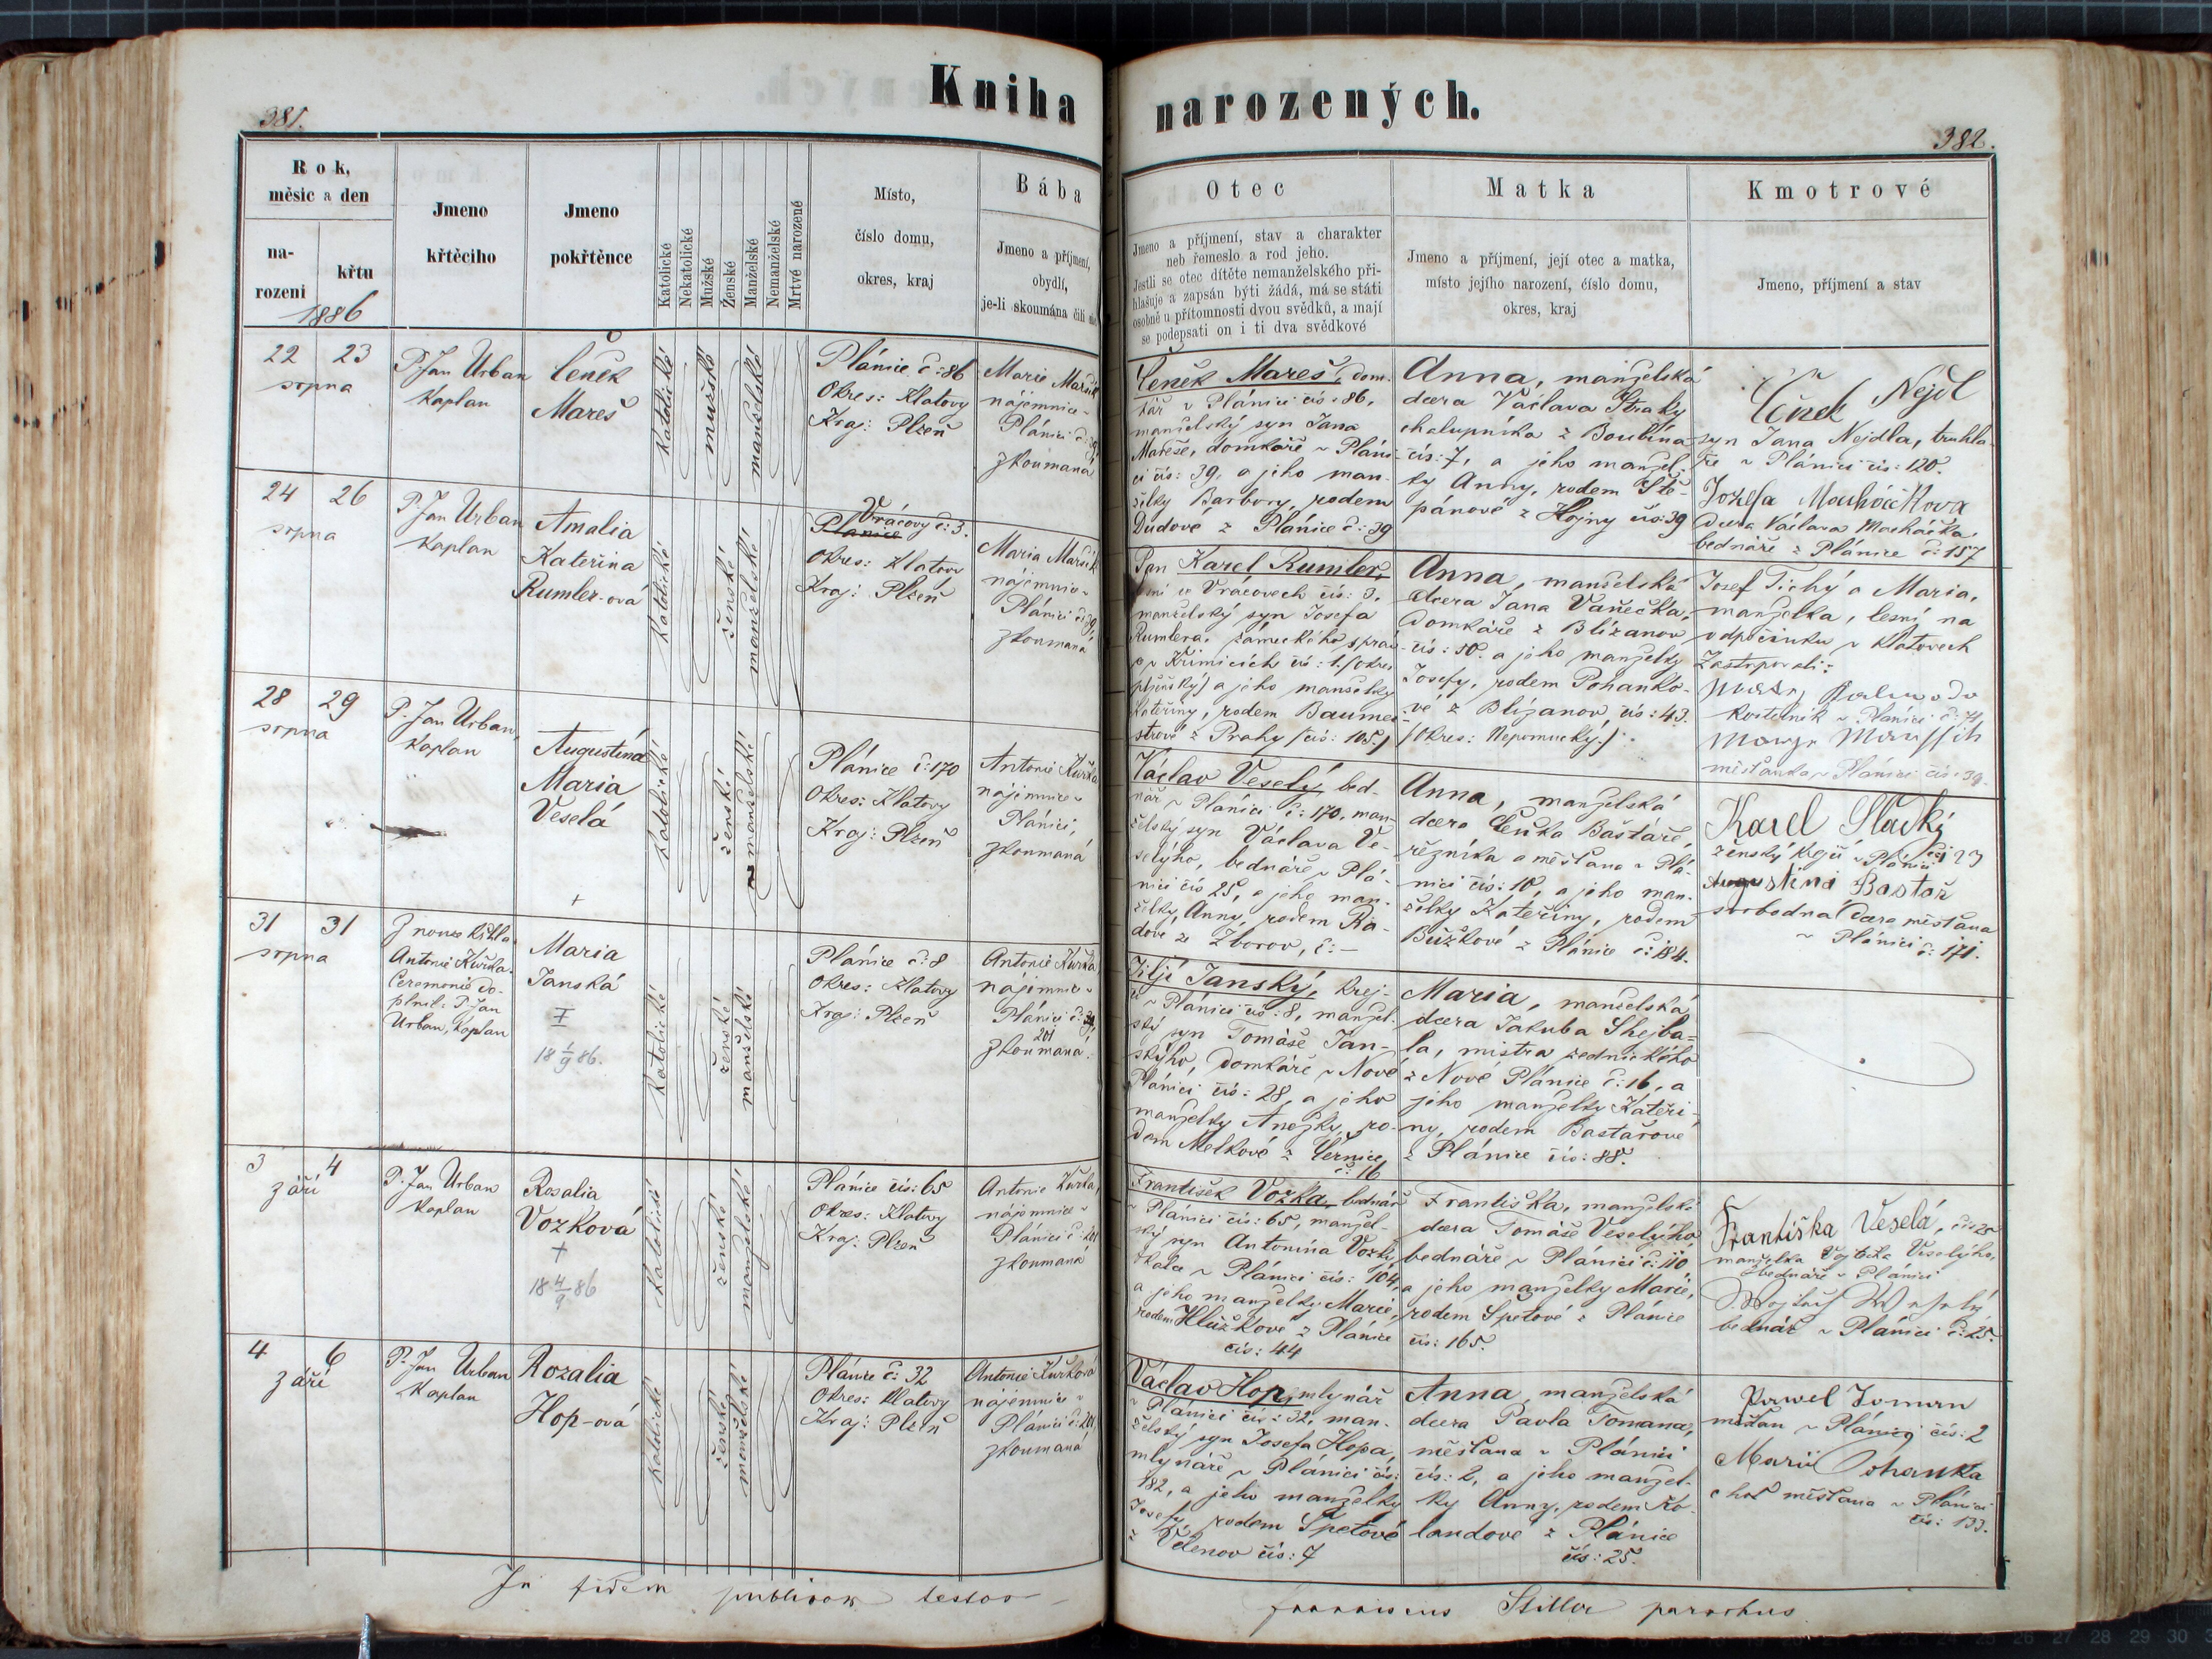 Kniha narozených.
381.
382.
Rok,
měsíc a den
na-
rození
křtu
1886
Jmeno
křtěcího
Jmeno
pokřtěnce
Katolické
Nekatolické
Mužské
Ženské
Manželské
Nemanželské
Mrtvé narozené
Místo,
číslo domu,
okres, kraj
Bába
Jmeno a příjmení,
obydlí,
je-li skoumána čili
Otec
Jmeno a příjmení, stav a charakter
neb řemeslo a rod jeho.
Jestli se otec dítěte nemanželského při-
hlašuje a zapsán býti žádá, má se státi
osobně u přítomnosti dvou svědků, a mají
se podepsati on i ti dva svědkové
Matka
Jmeno a příjmení, její otec a matka,
místo jejího narození, číslo domu,
okres, kraj
Kmotrové
Jmeno, příjmení a stav
22 23
srpna
P. Jan Urban
Kaplan
Čeněk
Mareš
katolické
mužské
manželské
Plánice č: 86
Okres: Klatovy
Kraj: Plzeň
Marie
nájemnice v
Plánici č: 39
zkoumaná
Čeněk Mareš, dom-
kář v Plánici čís: 86,
manželský syn Jana
Mareše, domkáře v Pláni-
ci čís: 39, a jeho man-
želky Barbory, rodem
Dudové z Plánice č: 39
Anna, manželská
dcera Václava Straky
chalupníka z Boubína
čís: 7, a jeho manžel-
ky Anny, rodem Ště-
pánové z Hojny čís: 39
Čeněk Nejdl
syn Jana Nejdla, truhla-
ře v Plánici čís: 120.
Jozefa Macháčkova
dcera Václava Macháčka
bednáře z Plánice č: 187
24 26
srpna
P. Jan Urban
Kaplan
Amalia
Kateřina
Rumler-ová
katolické
ženské
manželské
Vrácovy č: 3.
Plánice
Okres: Klatovy
Kraj: Plzeň
Maria
nájemnice v
Plánici č: 39,
zkoumaná
Pan Karel Rumler,
ve Vrácovech čís: 3.
manželský syn Josefa
Rumlera, zámeckého správ-
v Křimicích čís: 1. (okres
plzeňský) a jeho manželky
Kateřiny, rodem Baumei-
strové z Prahy (čís: 105.)
Anna, manželská
dcera Jana Vaněčka,
domkáře z Blížanov
čís: 50. a jeho manželky
Josefy, rodem Pohanko-
vé z Blížanov, čís: 43.
(Okres: Nepomucký.)
Josef Tichý a Maria,
manželka, lesní na
odpočinku v Klatovech
Zastupovali:
kostelník v Plánici č: 71,
měšťanka v Plánici čís: 39.
28 29
srpna
P. Jan Urban,
Kaplan
Augustina
Maria
Veselá
+
katolické
ženské
manželské
Plánice č: 170
Okres: Klatovy
Kraj: Plzeň
Antonie Kůrka
nájemnice v
Plánici,
zkoumaná
Václav Veselý, bed-
nář v Plánici č: 170, man-
želský syn Václava Ve-
selýho, bednáře v Plá-
nici čís 25, a jeho man-
želky, Anny, rodem Ra-
dové ze Zborov, č: -
Anna, manželská
dcera Čeňka Baštáře,
řezníka a měšťana v Plá-
nici čís: 10, a jeho man-
želky Kateřiny, rodem
Bužkové z Plánice č: 184.
Karel Sladký
ženský krejčí v Plánici čís 23
Augustina Bastař
svobodná dcera měšťana
v Plánici č: 171.
31 31
srpna
Z nouze křtila
Antonie Kůrka.
Ceremonie do-
plnil: P. Jan
Urban, Kaplan
Maria
Janská
18 1/9 86.
katolické
ženské
manželské
Plánice č: 8
Okres: Klatovy
Kraj: Plzeň
Antonie Kůrka
nájemnice v
Plánici č: 39,
201
zkoumaná.
Jiljí Janský, krej-
čí v Plánici čís: 8, manžel-
ský syn Tomáše Jan-
ského, domkáře v Nové
Plánici čís: 28, a jeho
manželky Anežky, ro-
dem Melkové z Černice,
č: 16
Maria, manželská
dcera Jakuba Shejba-
la, mistra zednického
z Nové Plánice č: 16, a
jeho manželky Kateři-
ny, rodem Bastařové
z Plánice čís: 88.
3 4
září
P. Jan Urban
Kaplan
Rosalia
Vozková
+
18 4/9 86
katolické
ženské
manželské
Plánice čís: 65
Okres: Klatovy
Kraj: Plzeň
Antonie Kůrka,
nájemnice v
Plánici č: 201
zkoumaná
František Vozka, bednář
v Plánici čís: 65, manžel-
ský syn Antonína Vozky,
tkalce v Plánici čís: 104,
a jeho manželky Marie,
rodem Hlůžkové z Plánice
čís: 44
Františka, manželská
dcera Tomáše Veselýho,
bednáře v Plánici č: 110
a jeho manželky Marie,
rodem Spetové z Plánice
čís: 165.
Františka Veselá, čís 25
manželka Vojtěcha Veselýho,
bednáře v Plánici
bednář v Plánici č: 25.
4 6
září
P. Jan Urban
Kaplan
Rozalia
Hop-ová
katolické
ženské
manželské
Plánice č: 32
Okres: Klatovy
Kraj: Plzeň
Antonie Kůrková
nájemnice v
Plánici č: 201,
zkoumaná
Václav Hop, mlynář
v Plánici čís: 32, man-
želský syn Josefa Hopa,
mlynáře v Plánici čís:
182, a jeho manželky
Josefy, rodem Spetové
z Vělenov čís: 7
Anna, manželská
dcera Pavla Tomana,
měšťana v Plánici
čís: 2, a jeho manžel-
ky Anny, rodem Ro-
landové z Plánice
čís: 25.
Pawel Toman
měšťan v Plánici čís: 2
Marie Pohanka
choť měšťana v Plánici
čís: 133.
In fidem publicam testor
Franciscus Stiller parochus